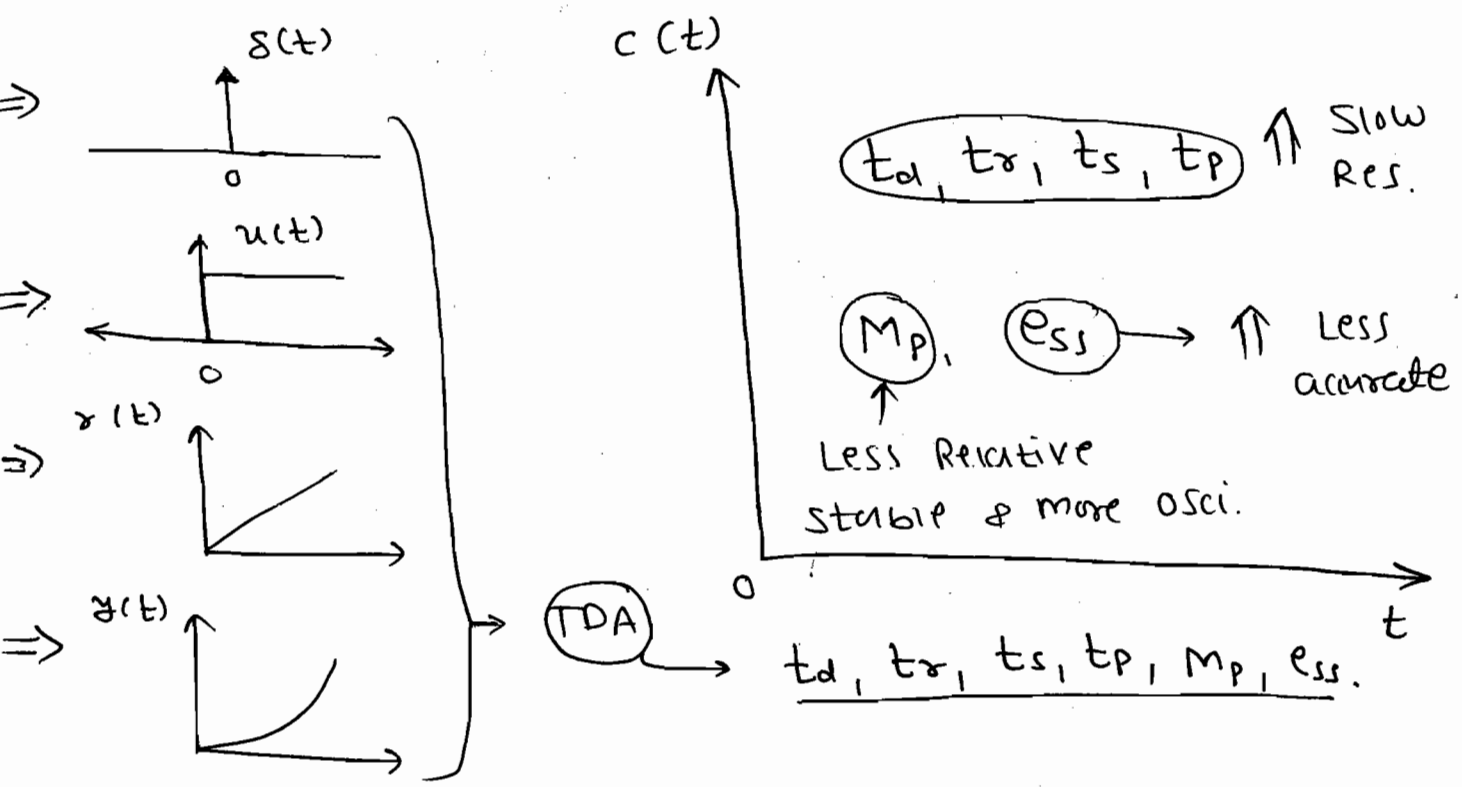 ⇒ δ(t)
0
⇒ u(t)
0
⇒ r(t)
⇒ y(t)
TDA → td, tr, ts, tp, Mp, ess.
c(t)
td, tr, ts, tp ⇑ Slow
Res.
Mp, ess → ⇑ Less
accurate
↑
Less Relative
stable & more osci.
0
t